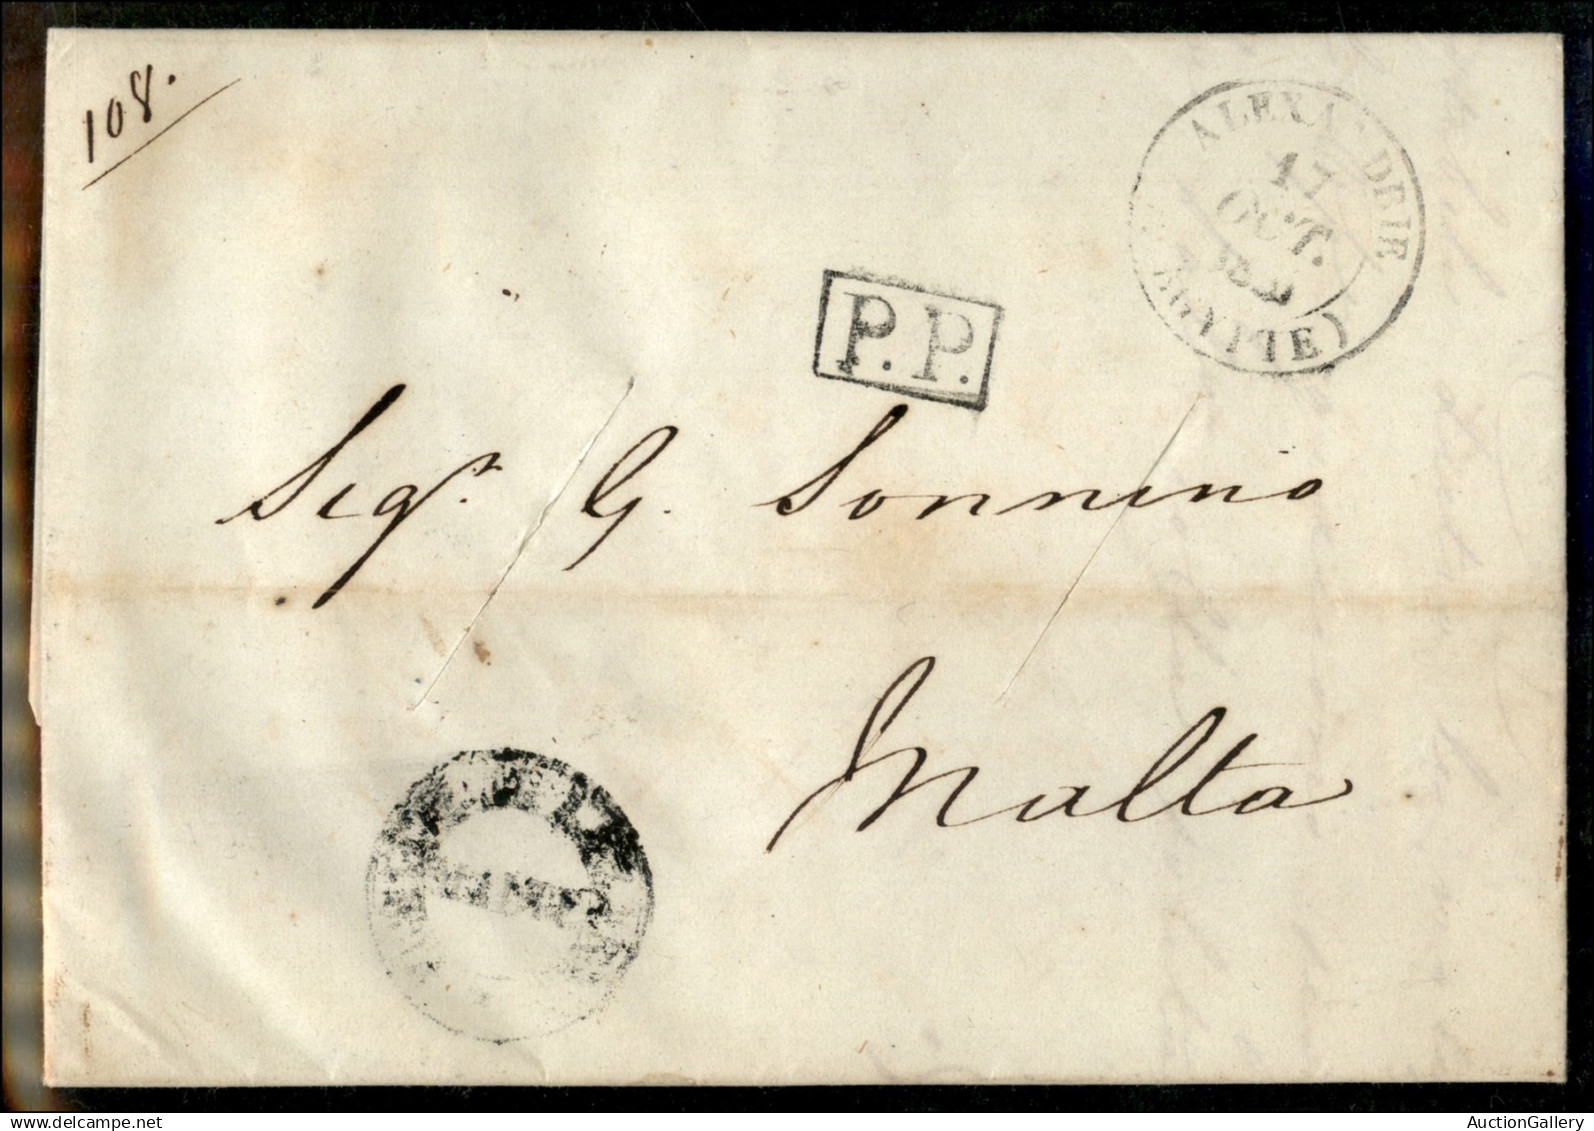 108.
ALEXANDRIE
17
OCT.
(EGYPTE)
P.P.
Sigr. G. Sonnino
Malta
AuctionGallery